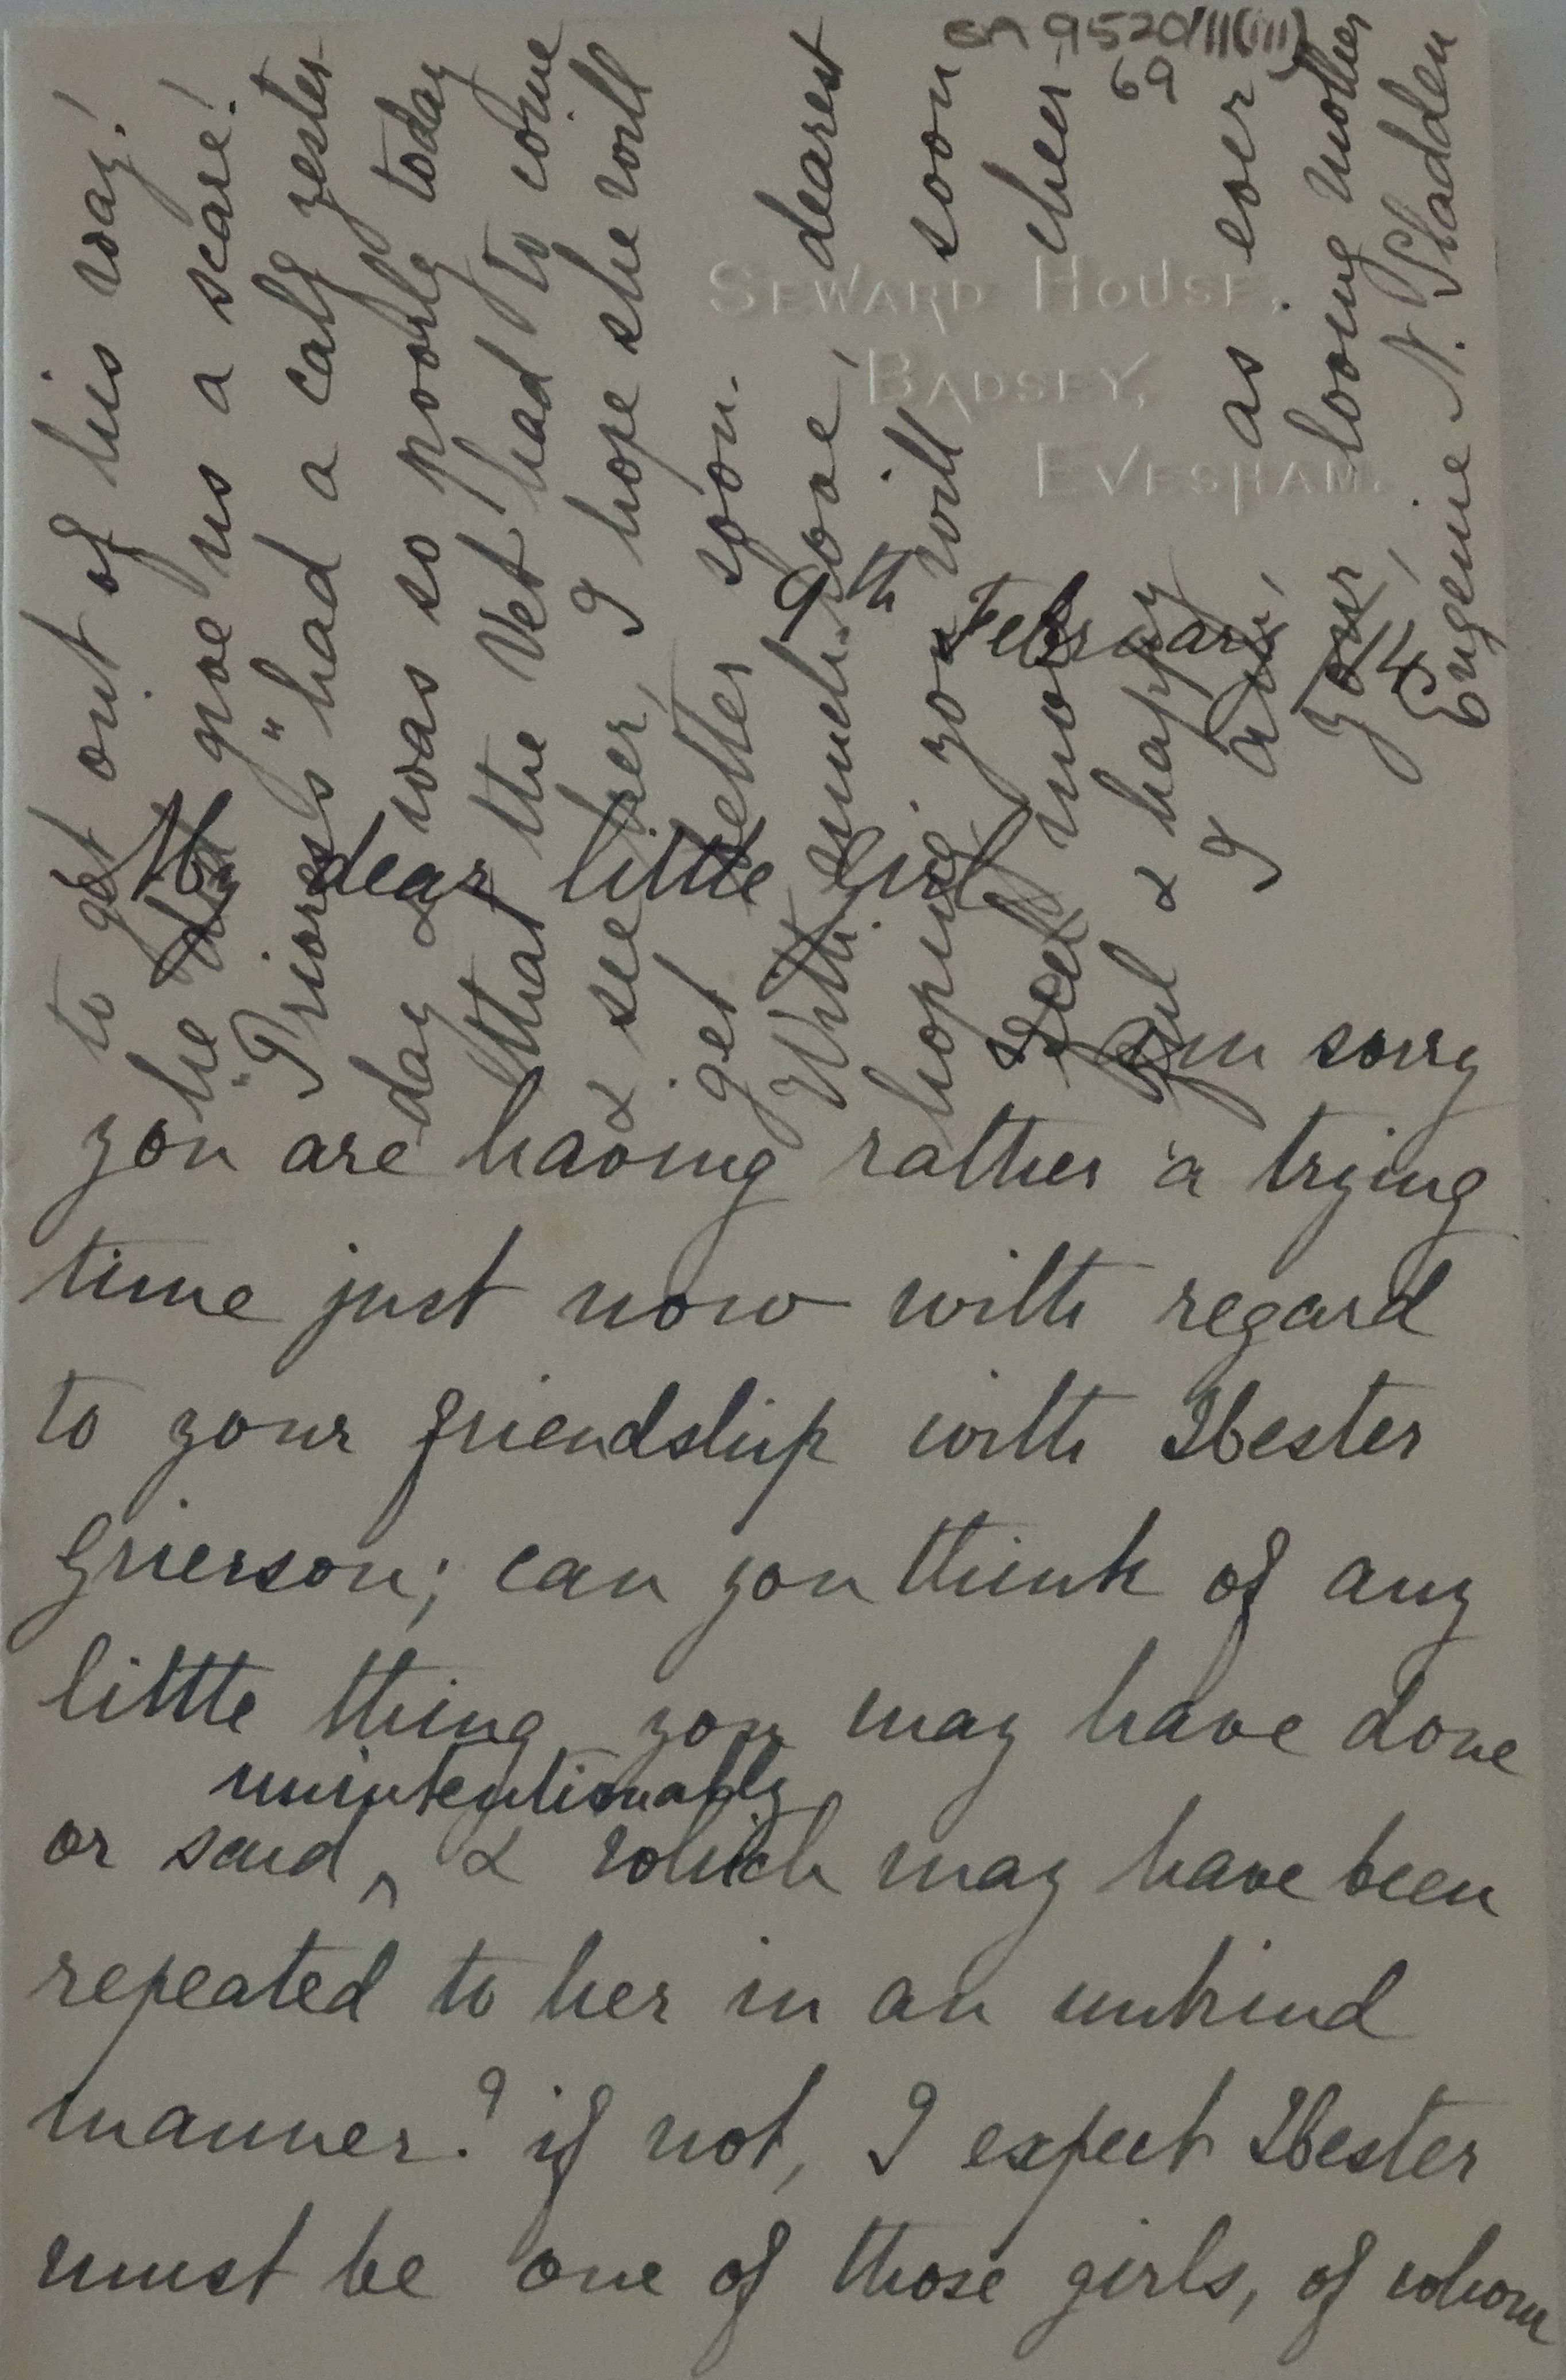 BA 9520/11(iii)
69
SEWARD HOUSE,
BADSEY,
EVESHAM.
9th February,
/14
My dear little Girl
I am sorry
you are having rather a trying
time just now with regard
to your friendship with Hester
Grierson; can you think of any
little thing you may have done
unintentionally
or said ^ & which may have been
repeated to her in an unkind
manner? if not, I expect Hester
must be one of those girls, of whom
to get out of his way!
he did give us a scare!
"Prioress" had a calf yester-
day & was so poorly today
that the Vet! had to come
& see her, I hope she will
get better soon.
With much love, dearest
hoping you will soon
feel more cheer-
ful & happy
I am, as ever
Your loving mother
Eugénie N. Sladden